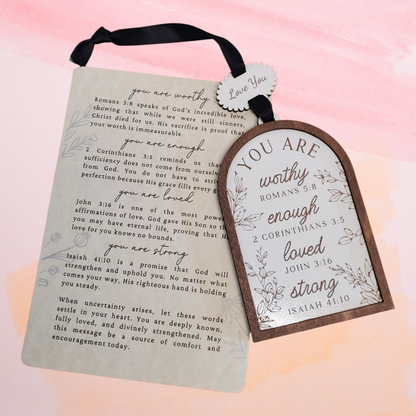 you are worthy
Romans 5:8 speaks of God's incredible love,
showing that while we were still sinners,
Christ died for us. His sacrifice is proof that
your worth is immeasurable.
you are enough
2 Corinthians 3:5 reminds us that
sufficiency does not come from ourselves
from God. You do not have to strive
perfection because His grace fills every
you are loved
John 3:16 is one of the most
affirmations of love. God gave His Son so th
you may have eternal life, proving that H
love for you knows no bounds.
you are strong
Isaiah 41:10 is a promise that God will
strengthen and uphold you. No matter what
comes your way, His righteous hand is holding
you steady.
When uncertainty arises, let these words
settle in your heart. You are deeply known,
fully loved, and divinely strengthened. May
this message be a source of comfort and
encouragement today.
Love You
YOU ARE
worthy
ROMANS 5:8
enough
2 CORINTHIANS 3:5
loved
JOHN 3:16
strong
ISAIAH 41:10